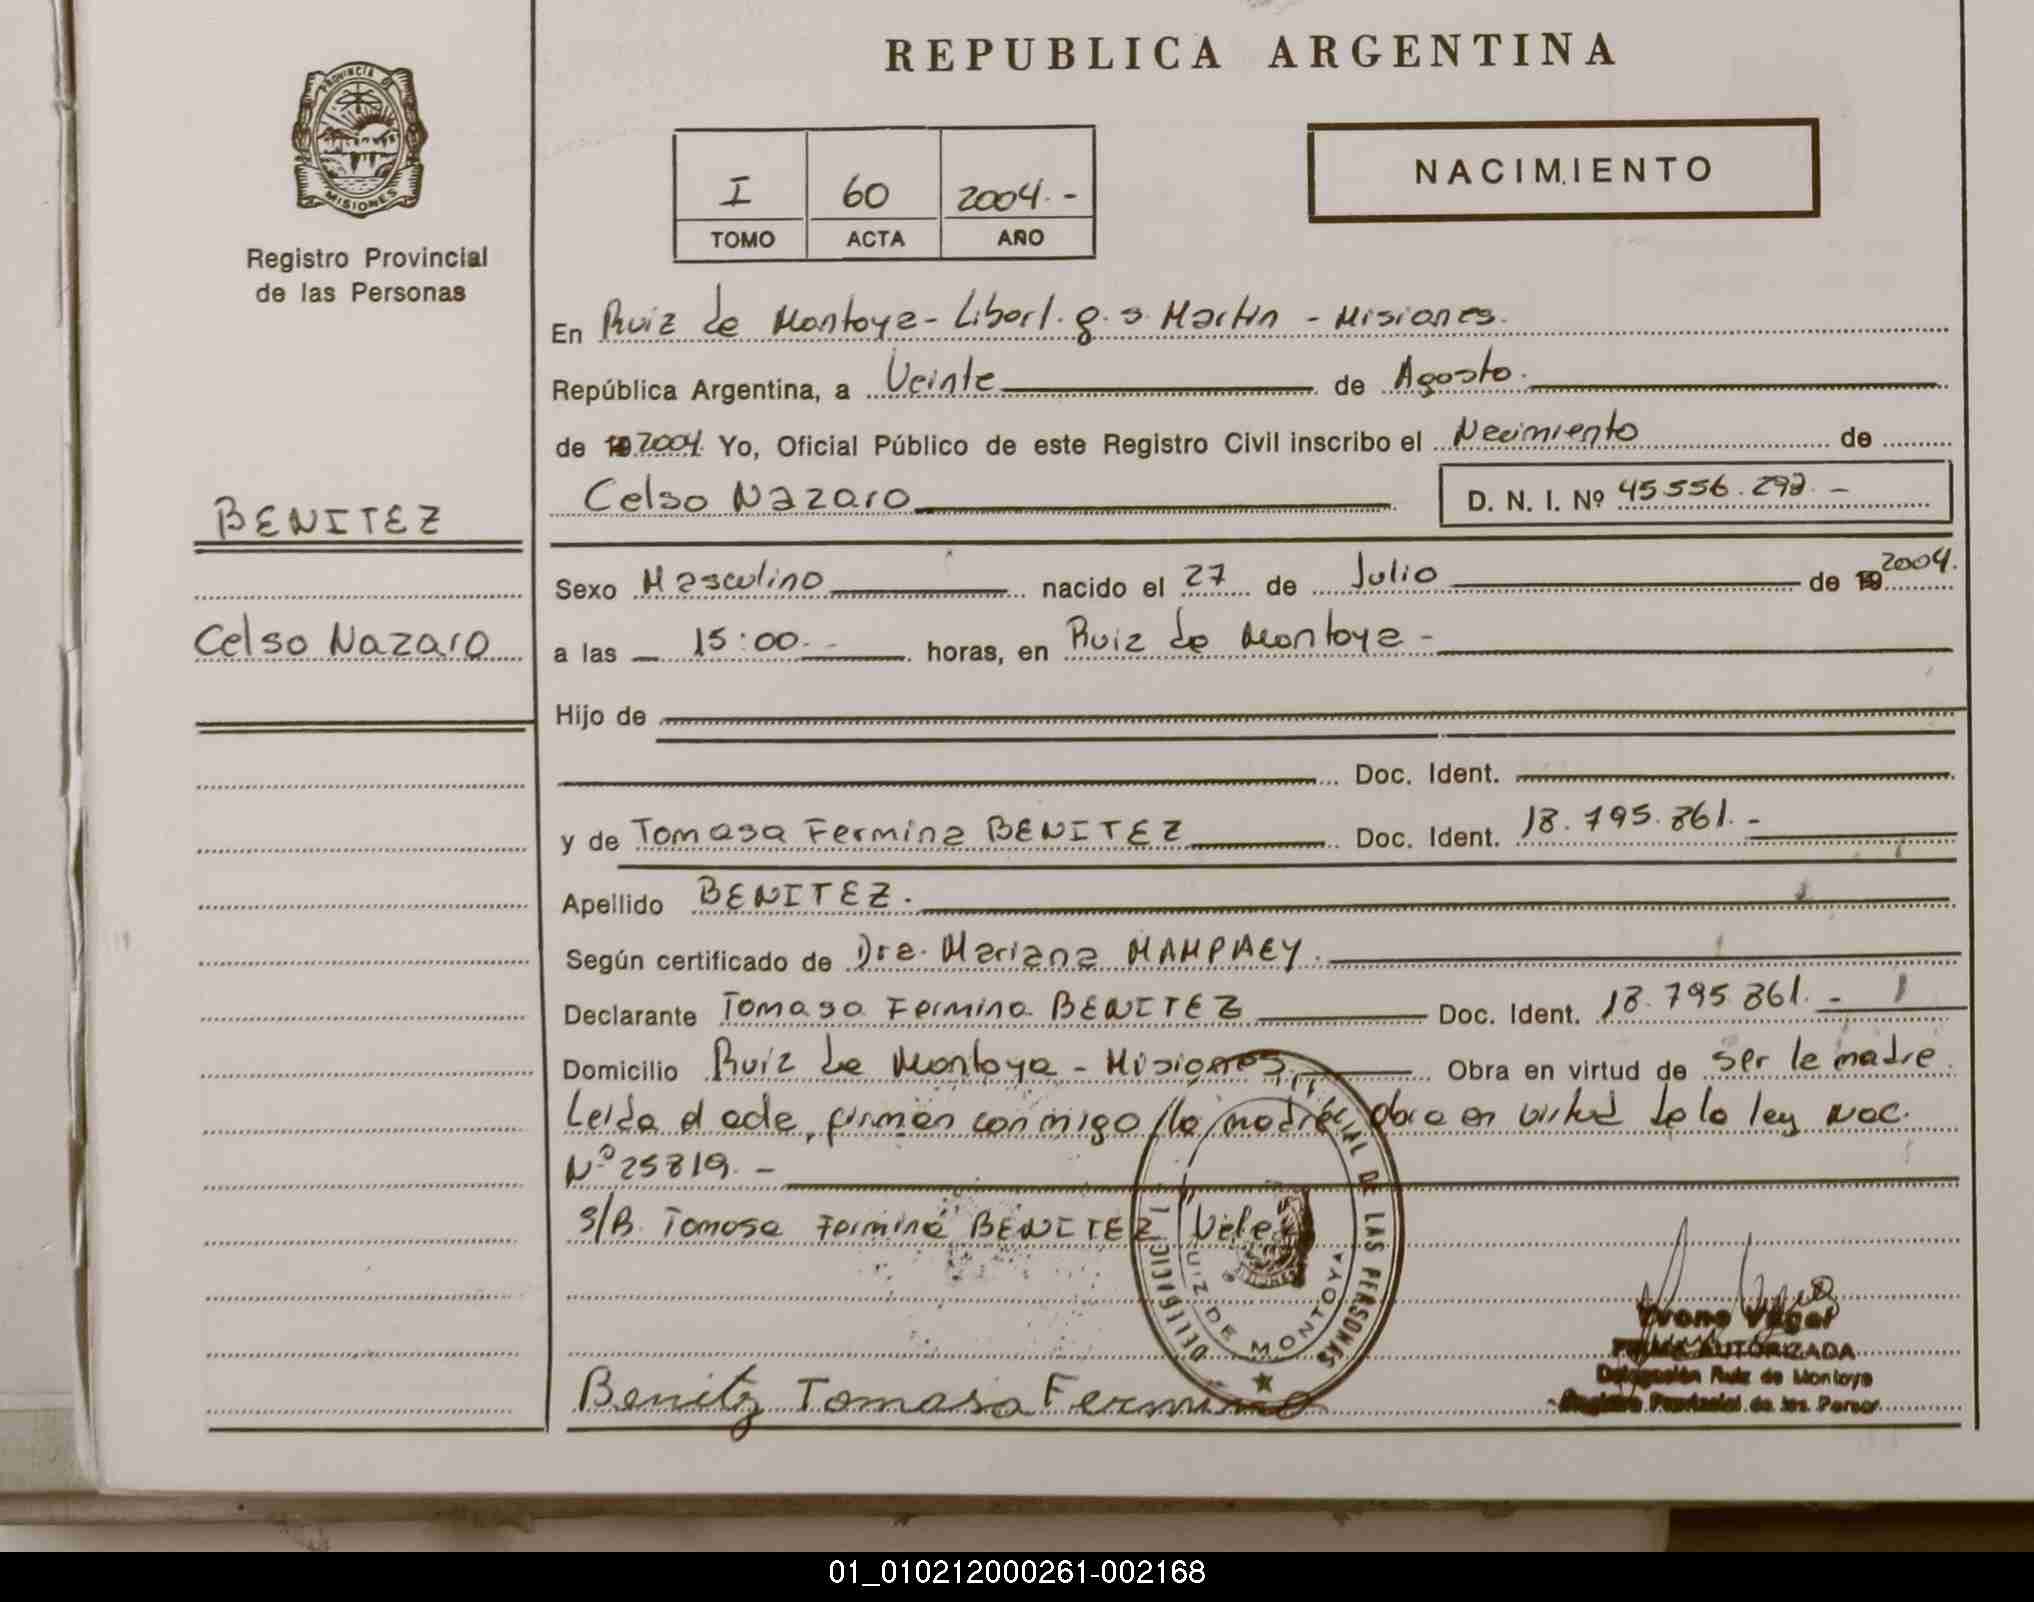 REPUBLICA ARGENTINA
PROVINCIA DE
MISIONES
Registro Provincial
de las Personas
NACIMIENTO
I 60 2004.-
TOMO ACTA AÑO
En Ruiz de Montoya - Libert. g. s. Martin - Misiones.
República Argentina, a Veinte de Agosto.
de 19 2004. Yo, Oficial Público de este Registro Civil inscribo el Necimiento de
Celso Nazaro D. N. I. Nº 45.556.292.-
BENITEZ
Celso Nazaro
Sexo Masculino nacido el 27 de Julio de 19 2004.
a las 15:00.- horas, en Ruiz de Montoya -
Hijo de
Doc. Ident.
y de Tomasa Fermina BENITEZ Doc. Ident. 18.795.861.-
Apellido BENITEZ.
Según certificado de Dra. Mariana MAMPAEY.
Declarante Tomasa Fermina BENITEZ Doc. Ident. 18.795.861.-
Domicilio Ruiz de Montoya - Misiones Obra en virtud de ser la madre.
Leída el acta, firman conmigo /la madre/ obra en virtud de la ley Nac.
Nº 25819.-
S/B. Tomasa Fermina BENITEZ Vale
DE LAS PERSONAS
RUIZ DE MONTOYA
Benitez Tomasa Fermina
FIRMA AUTORIZADA
Delegación Ruiz de Montoya
Registro Provincial de las Person
01_010212000261-002168